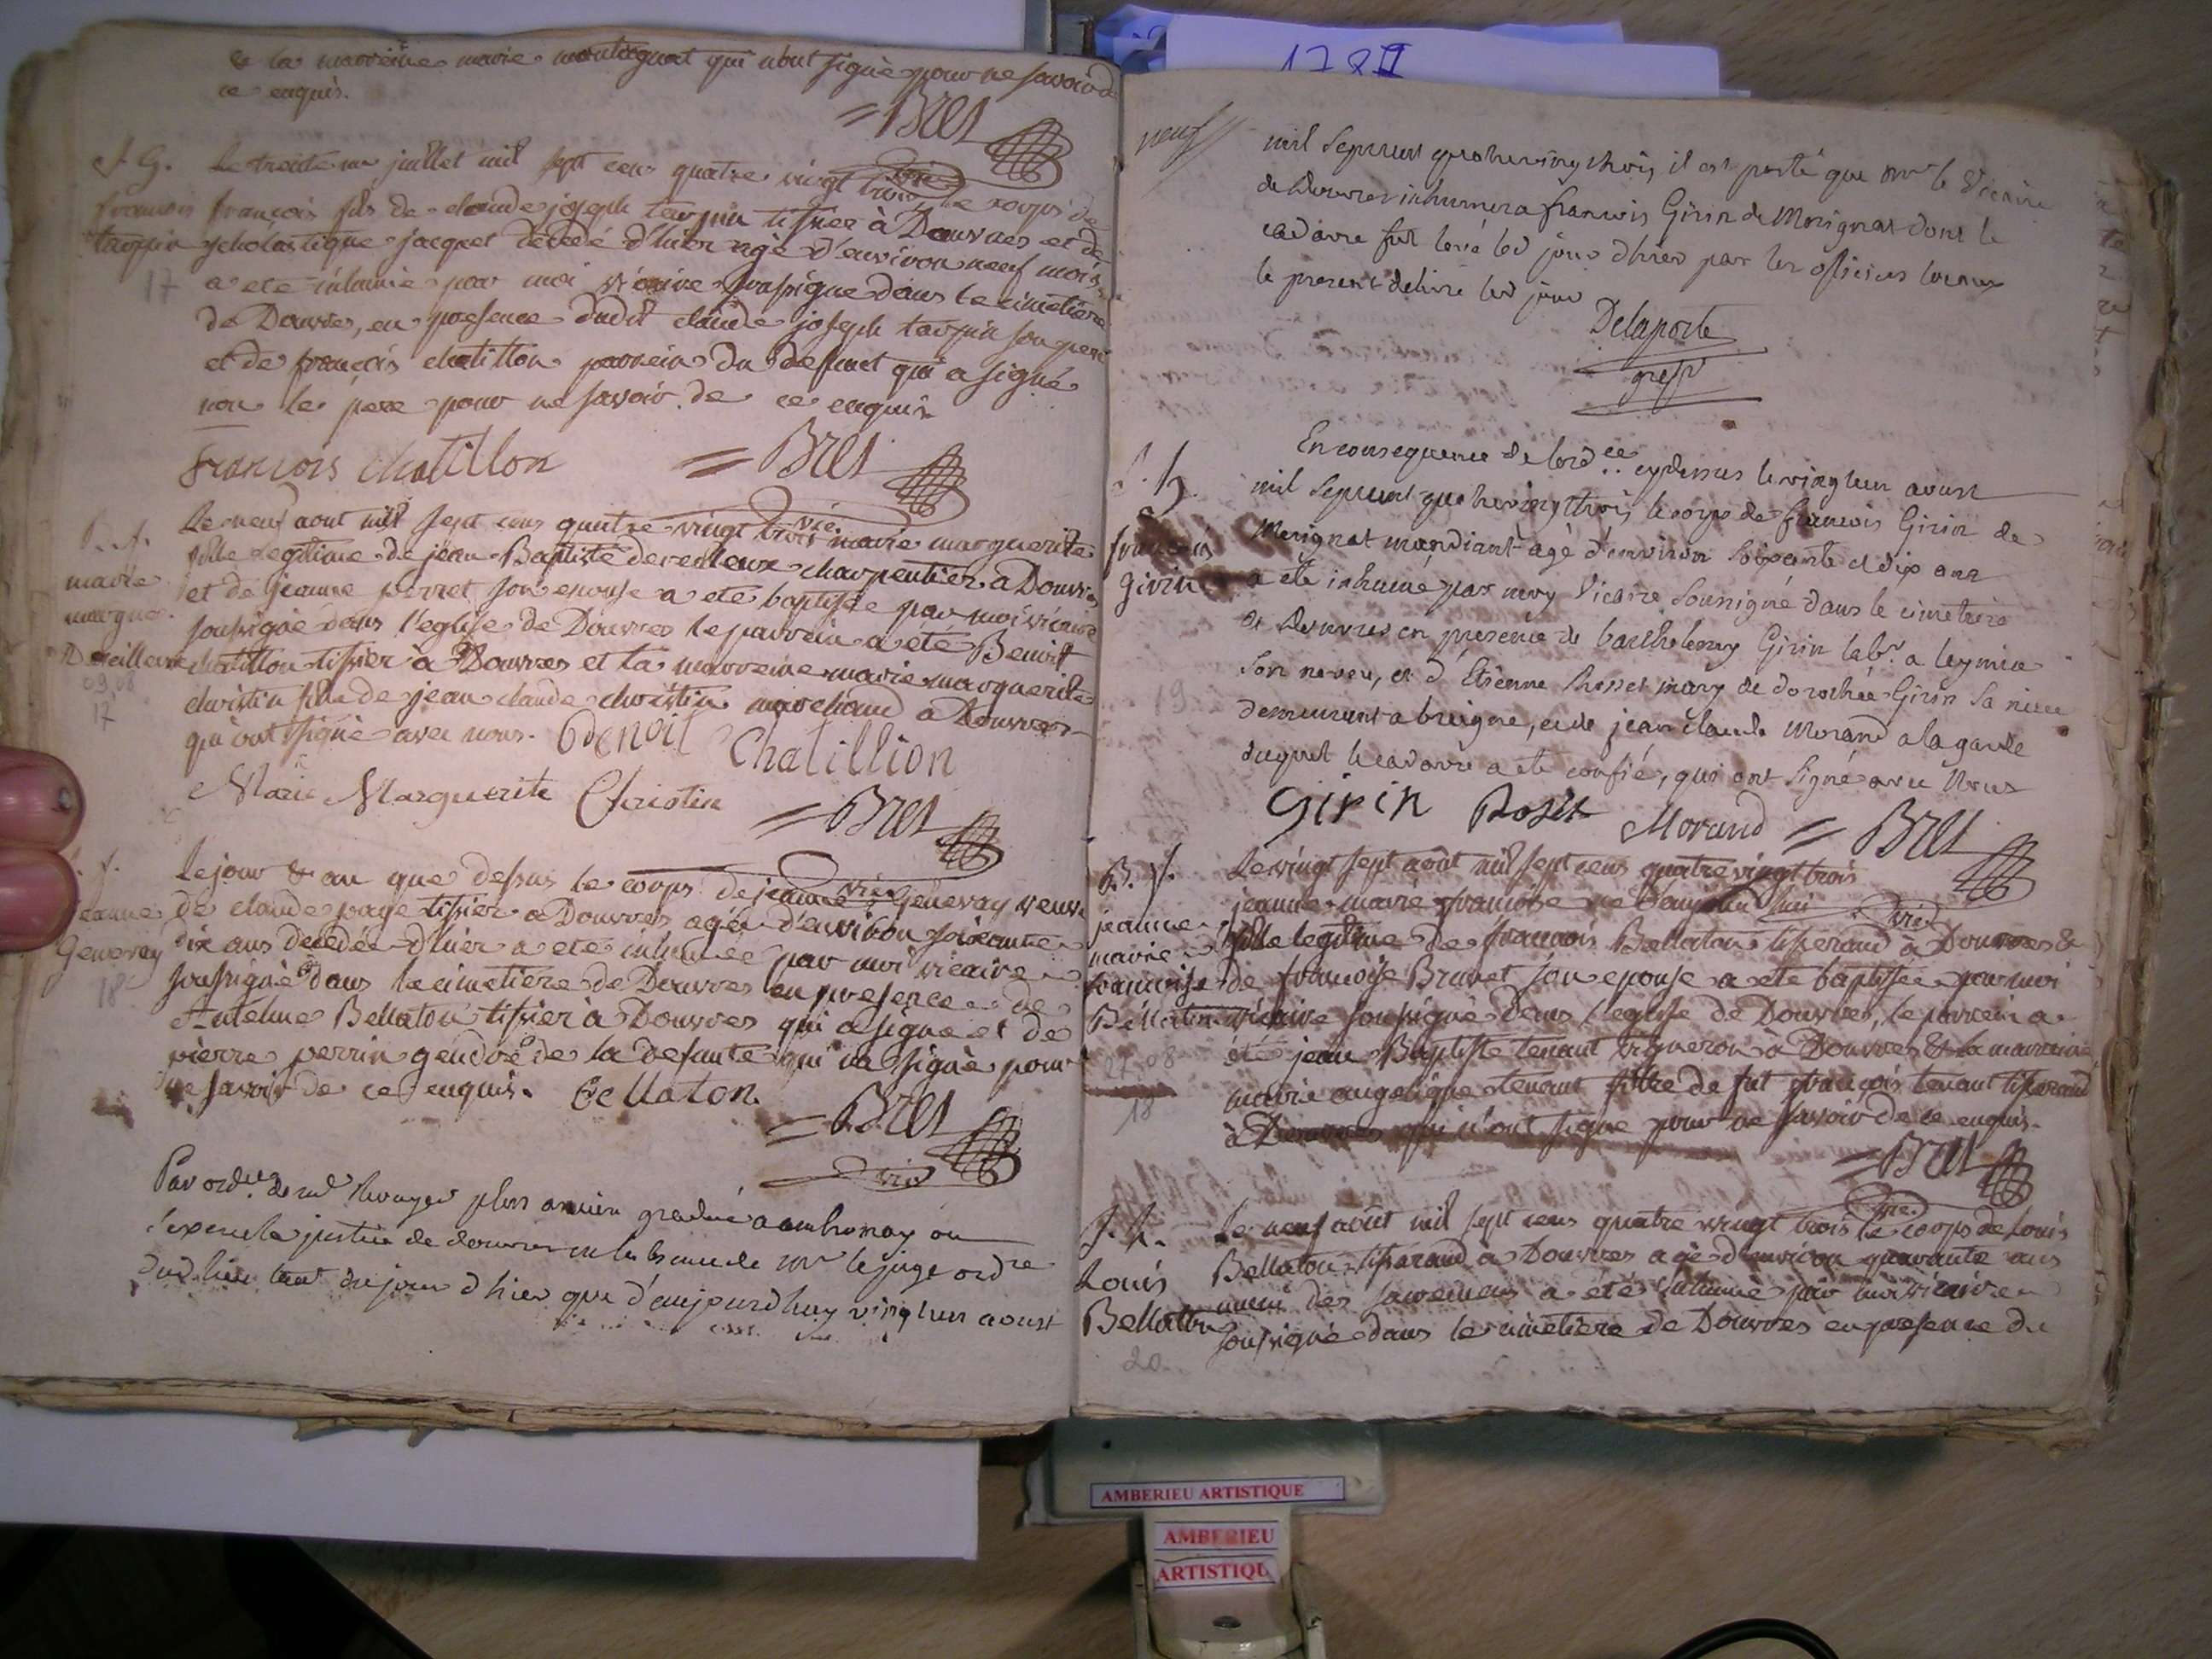 & la marreine marie montagnat qui n'ont signé pour ne savoir de
ce enquis.
= Bret
vic.
S. G.
francois
tarpin
17
Le trente un juillet mil sept cens quatre vingt trois le corps de
françois fils de claude joseph tarpin tissier à Douvres et de
scholastique jacquet décédé d'hier agé d'environ neuf mois
a eté inhumé par moi vicaire soussigné dans le cimetière
de Douvres, en presence dudit claude joseph tarpin son pere
et de françois chatillon parrein du defunt qui a signé
non le pere pour ne savoir de ce enquis
francois chatillon = Bret
vic.
marie
margue.
09 08
17
Le neuf aout mil sept cens quatre vingt trois marie marguerite
fille legitime de jean Baptiste charpentier à Douvres
et de jeanne perret son epouse a eté baptisée par moi vicaire
soussigné dans l'eglise de Douvres le parrein a eté Benoit
chatillon tissier à Douvres et la marreine marie marguerite
christin fille de jean claude christin marchand à Douvres
qui ont signé avec nous. Benoit Chatillion
Marie Marguerite Christin = Bret
vic.
jeanne
Genevay
18
Le jour & an que dessus le corps de jeanne Genevay veuve
de claude page tissier à Douvres agée d'environ soixante
dix ans decedée d'hier a eté inhumée par moi vicaire
soussigné dans le cimetière de Douvres en presence de
Antelme Bellaton tissier à Douvres qui a signé et de
pierre perrin gendre de la defunte qui n'a signé pour
ne savoir de ce enquis. Bellaton.
= Bret
vic.
Par ordce. de plus ancien gradué a ambronay
justice de douvres en labsence de mr le juge ordre
dud. lieu du jour d hier que d'aujourdhuy vingt un aoust
178
neuf
mil sept cent quatre vingt trois, il est porté que mr le Vicaire
de douvres inhumera francois Girin de Merignat dont le
cadavre fut levé led jour d'hier par les officiers locaux
le present delivré led jour
Delaporte
greff
S. h.
francois
Girin
19
En consequence de lordce. cy dessus le vingt un aoust
mil sept cent quatre vingt trois le corps de francois Girin de
Merignat mandiant agé d'environ soixante et dix ans
a eté inhumé par moy Vicaire soussigné dans le cimetiere
de douvres en presence de barthelemy Girin labr. a leymia
son neveu, et d'Etienne Rosset mary de dorothée Girin sa niece
demeurant a breigne, et de jean claude Morand a la garde
duquel le cadavre a eté confié, qui ont signé avec Nous
Girin Roset Morand = Bret
vic.
B. f.
jeanne
marie
francoise
Bellaton
27 08
18
Le vingt sept août mil sept cens quatre vingt trois
jeanne marie françoise née d'aujourd'hui
fille legitime de francois Bellaton tisserand à Douvres &
de francoise Brunet son epouse a eté baptisée par moi
vicaire soussigné dans l'eglise de Douvres, le parrein a
été jean Baptiste tenant vigneron à Douvres & la marreine
marie angelique tenant fille de fut françois tenant tisserand
à Douvres qui n'ont signé pour ne savoir de ce enquis.
= Bret
vic.
S. h.
Louis
Bellaton
20
Le neuf août mil sept cens quatre vingt trois le corps de Louis
Bellaton tisserand à Douvres agé d'environ quarante ans
muni des sacremens a été inhumé par moi vicaire
soussigné dans le cimetiere de Douvres en presence du
AMBERIEU ARTISTIQUE
AMBERIEU
ARTISTIQU